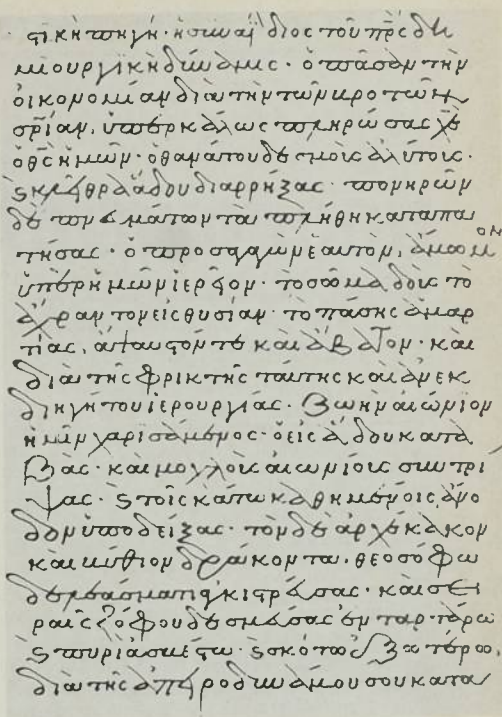 τικὴ πηγή· ἡ συναΐδιος τοῦ πρς δη
μιουργικὴ δύναμις· ὁ πᾶσαν τὴν
οἰκονομίαν διὰ τὴν τῶν βροτῶν
σρίαν, ὑπερκάλως πληρώσας χε
ὁ θς ἡμῶν· ὁ θανάτου δεσμοὺς ἀλύτους·
ϛ κλεῖθρα ἅδου διαρρήξας· πονηρῶν
δὲ πνευμάτων τὰ πλήθη καταπα
τήσας· ὁ προσαγαγὼν ἑαυτὸν, ἄμωμον
ὑπὲρ ἡμῶν ἱερεῖον· τὸ σῶμα δοὺς τὸ
ἄχραντον εἰς θυσίαν· τὸ πάσης ἁμαρ
τίας, ἄψαυστόν τε καὶ ἄβατον· καὶ
διὰ τῆς φρικτῆς ταύτης καὶ ἀνεκ
διηγήτου ἱερουργίας· ζωὴν αἰώνιον
ἡμῖν χαρισάμενος· ὁ εἰς ἅδου κατα
βὰς· καὶ μοχλοὺς αἰωνίους συντρί
ψας· ϛ τοῖς κάτω καθημένοις, ἄνο
δον ὑποδείξας· τὸν δὲ ἀρχέκακον
καὶ βύθιον δράκοντα· θεοσόφω
δελεάσματι ἀγκιστρεύσας· καὶ σει
ραῖς ζόφου δεσμεύσας ἐν ταρτάρω
ϛ πυρὶ ἀσβέστω· ϛ σκότω ἐξωτέρω,
διὰ τῆς ἀπειροδυνάμου σου κατα